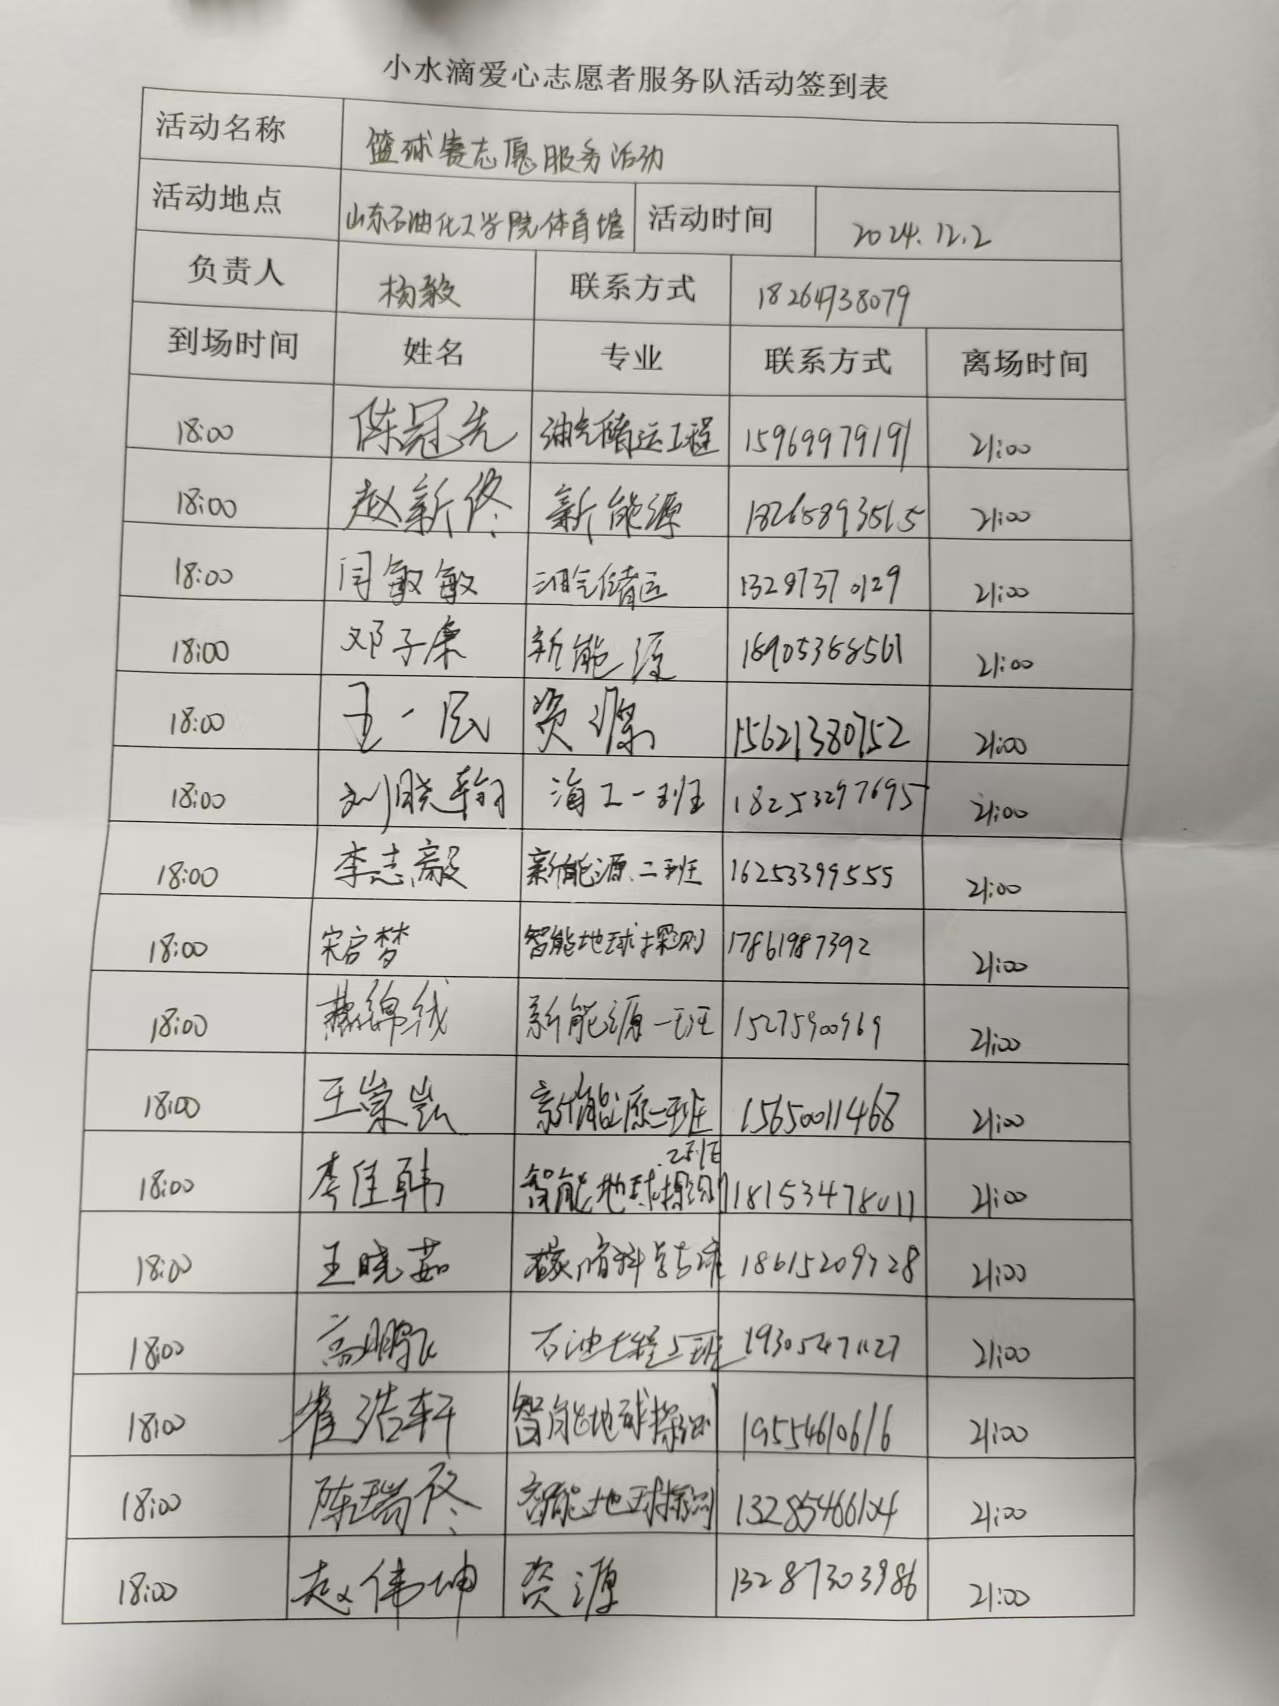 小水滴爱心志愿者服务队活动签到表
活动名称 篮球赛志愿服务活动
活动地点 山东石油化工学院体育馆 活动时间 2024.12.2
负责人 杨毅 联系方式 18264738079
到场时间 姓名 专业 联系方式 离场时间
18:00 陈冠先 油气储运工程 15969979191 21:00
18:00 赵新佟 新能源 18265893565 21:00
18:00 闫敏敏 油气储运 13287370129 21:00
18:00 邓子康 新能源 16905368561 21:00
18:00 王一辰 资源 15621380752 21:00
18:00 刘晓翰 海工一班 18253297695 21:00
18:00 李志毅 新能源二班 16253399559 21:00
18:00 宋启梦 智能地球探测 17861987392 21:00
18:00 綿线 新能源一班 15275900969 21:00
18:00 王崇凯 新能源二班 15650011468 21:00
18:00 李佳韩 智能地球探测二班 18153478011 21:00
18:00 王晓茹 18615209728 21:00
18:00 高鹏飞 石油工程五班 19305471127 21:00
18:00 崔浩轩 智能地球探测 19554610616 21:00
18:00 陈瑞佟 智能地球探测 13285466104 21:00
18:00 赵伟坤 资源 13287303986 21:00